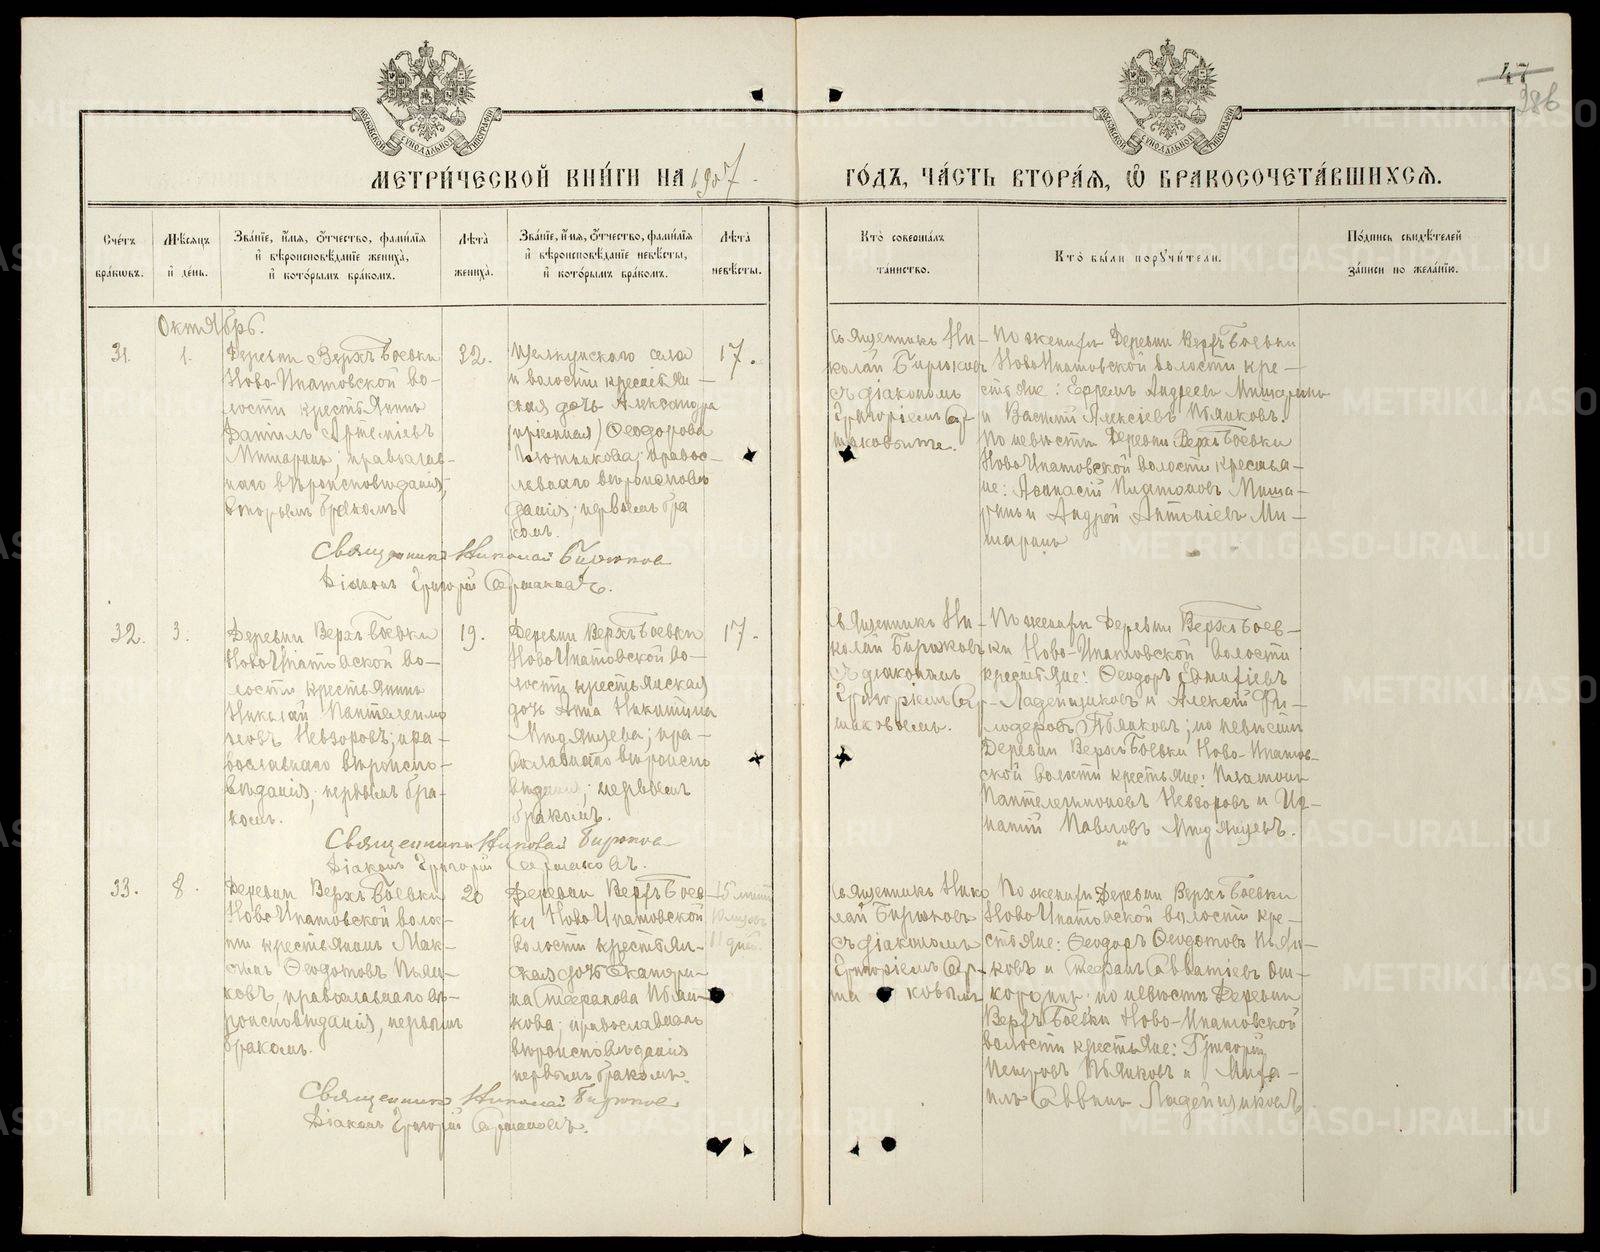 47
286
МЕТРИ́ЧЕСКОЙ КНИ́ГИ НА 1907
ГО́ДЪ, ЧА́СТЬ ВТОРА́Я, Ѡ БРАКОСОЧЕТА́ВШИХСЯ.
Сче́тъ бра́ковъ.
Мѣ́сяцъ и҆ де́нь.
Зва́нїе, и҆́мя, ѻ҆́тчество, фами́лїя
и҆ вѣроисповѣ́данїе жениха̀,
и҆ кото́рымъ бра́комъ.
Лѣта̀ жениха̀.
Зва́нїе, и҆́мя, ѻ҆́тчество, фами́лїя
и҆ вѣроисповѣ́данїе невѣ́сты,
и҆ кото́рымъ бра́комъ.
Лѣта̀ невѣ́сты.
Кто̀ соверша́лъ
та́инство.
Кто̀ бы́ли порꙋчи́тели.
По́дпись свидѣ́телей
за́писи по жела́нїю.
Октябрь.
31.
1.
Деревни Верхъ Боевки
Ново-Ипатовской во-
лости крестьянинъ
Даніилъ Артеміевъ
Мишаринъ; православ-
наго вѣроисповѣданія,
вторымъ бракомъ
32.
Щелкунскаго села
и волости крестьян-
ская дочь Александра
(пріемная) Ѳеодорова
Плотникова; право-
славнаго вѣроисповѣ
данія; первымъ бра
комъ.
17.
Священникъ Ни-
колай Бирюковъ
съ діакономъ
Григоріемъ Ар-
шаковымъ.
По женихѣ Деревни Верхъ Боевки
Ново Ипатовской волости кре-
стьяне: Ефремъ Андреевъ Мишаринъ
и Василій Алексіевъ Пьянковъ.
По невѣстѣ Деревни Верхъ Боевки
Ново Ипатовской волости крестья-
не: Аѳанасій Платоновъ Миша-
ринъ и Андрей Антоніевъ Ми-
шаринъ
Священникъ Николай Бирюковъ
Діаконъ Григорій Аршаковъ.
32.
3.
Деревни Верхъ Боевки
Ново Ипатовской во-
лости крестьянинъ
Николай Пантелеимо
новъ Невзоровъ; пра-
вославнаго вѣроиспо-
вѣданія; первымъ бра-
комъ.
19.
Деревни Верхъ Боевки
Ново Ипатовской во-
лости крестьянская
дочь Анна Никитина
Медянцева; пра-
вославнаго вѣроиспо
вѣданія; первымъ
бракомъ.
17.
Священникъ Ни-
колай Бирюковъ
съ діакономъ
Григоріемъ Ар-
шаковымъ.
По женихѣ Деревни Верхъ Боев-
ки Ново-Ипатовской волости
крестьяне: Ѳеодоръ Евѳиміевъ
Ладейщиковъ и Алексій Фи-
лодоровъ Пьянковъ; по невѣстѣ
Деревни Верхъ Боевки Ново-Ипатов-
ской волости крестьяне: Платонъ
Пантелеимоновъ Невзоровъ и Иг-
натій Павловъ Медянцевъ.
Священникъ Николай Бирюковъ
Діаконъ Григорій Аршаковъ.
33.
8.
Деревни Верхъ Боевки
Ново Ипатовской волос-
ти крестьянинъ Мак-
симъ Ѳеодотовъ Пьян-
ковъ, православнаго вѣ-
роисповѣданія, первымъ
бракомъ.
20
Деревни Верхъ Боев-
ки Ново Ипатовской
волости крестьян-
ская дочь Екатери-
на Стефанова Пьян-
кова; православнаго
вѣроисповѣданія
первымъ бракомъ.
15 лѣтъ
10 мѣсяц.
11 дней.
Священникъ Нико
лай Бирюковъ
съ діакономъ
Григоріемъ Ар-
шаковымъ
По женихѣ Деревни Верхъ Боевки
Ново Ипатовской волости кре-
стьяне: Ѳеодоръ Ѳеодотовъ Пьян-
ковъ и Стефанъ Савватіевъ
по невѣстѣ Деревни
Верхъ Боевки Ново-Ипатовской
волости крестьяне: Григорій
Петровъ Пьянковъ и Миха-
илъ Саввинъ Ладейщиковъ
Священникъ Николай Бирюковъ
Діаконъ Григорій Аршаковъ.